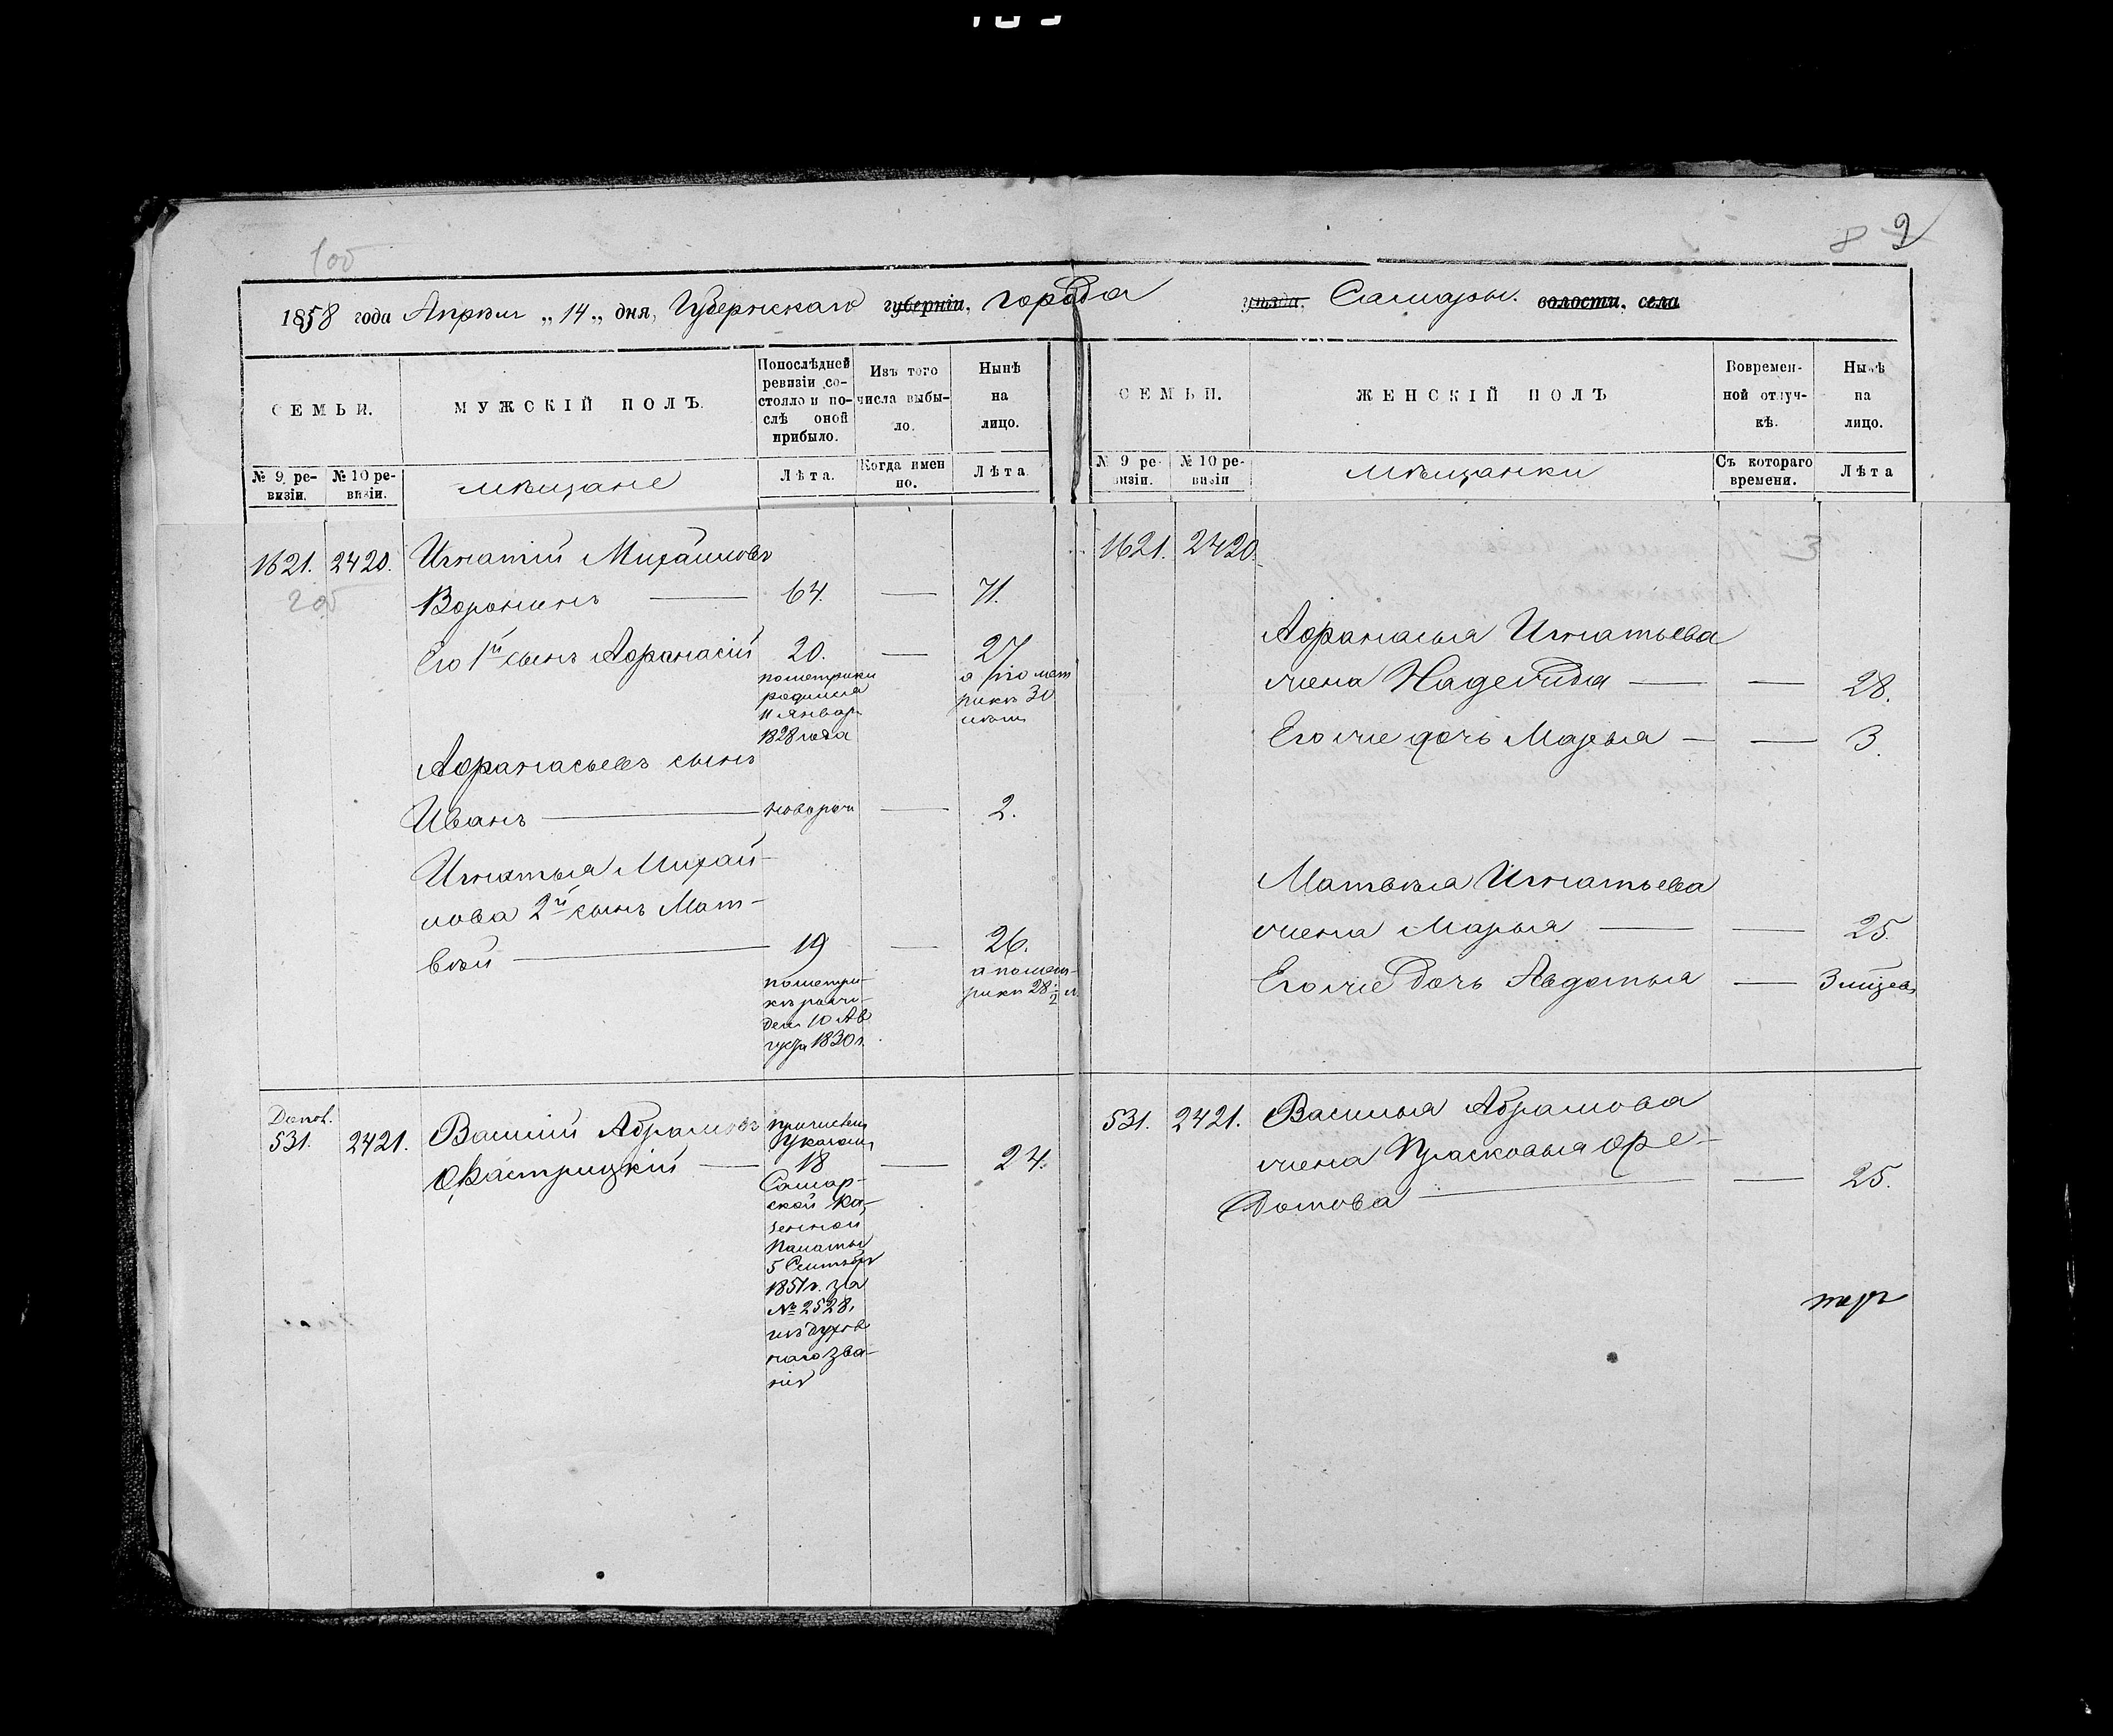 8 9
1858 года Апреля „14„ дня, Губернскаго губерніи, города
уѣзда, Самары. волости, села
СЕМЬИ.
МУЖСКІЙ ПОЛЪ.
Попослѣдней
ревизіи со-
стояло и по-
слѣ оной
прибыло.
Изъ того
числа выбы-
ло.
Нынѣ
на
лицо.
№ 9 ре-
визіи.
№ 10 ре-
визіи.
мѣщане
Лѣта.
Когда имен
но.
Лѣта
1621. 2420. Игнатій Михайловъ
Воронинъ — 64. — 71.
Его 1й сынъ Афранасій 20. — 27
пометрики
родился
11 Январ
1828 года
а по мет
рикѣ 30
лѣтъ
Афранасьевъ сынъ
Иванъ — новорож — 2.
Игнатья Михай-
лова 2й сынъ Мат-
вѣй — 19 — 26.
пометри-
кѣ рож-
ден 10 Ав
густа 1830 г.
а помет-
рикѣ 28 1/2 л
Допол.
531. 2421. Василій Абрамовъ
Фастрицкій — 18 — 24.
причислен
Указом
Самар-
ской Ка-
зенной
Палаты
5 Сентября
1851 г. за
№ 2528,
изъ духов
наго зва-
нія
СЕМЬИ.
ЖЕНСКІЙ ПОЛЪ
Вовремен-
ной отлуч-
кѣ.
Нынѣ
на
лицо.
№ 9 ре-
визіи.
№ 10 ре-
визіи
мѣщанки
Съ котораго
времени.
Лѣта
1621. 2420.
Афранасья Игнатьева
жена Надежда — — 28.
Его же дочь Марья — — 3.
Матвѣя Игнатьева
жена Марья — — 25.
Его же дочь Авдотья — 3 мѣсев
531. 2421. Василья Абрамова
жена Прасковья Фе-
дотова — — 25.